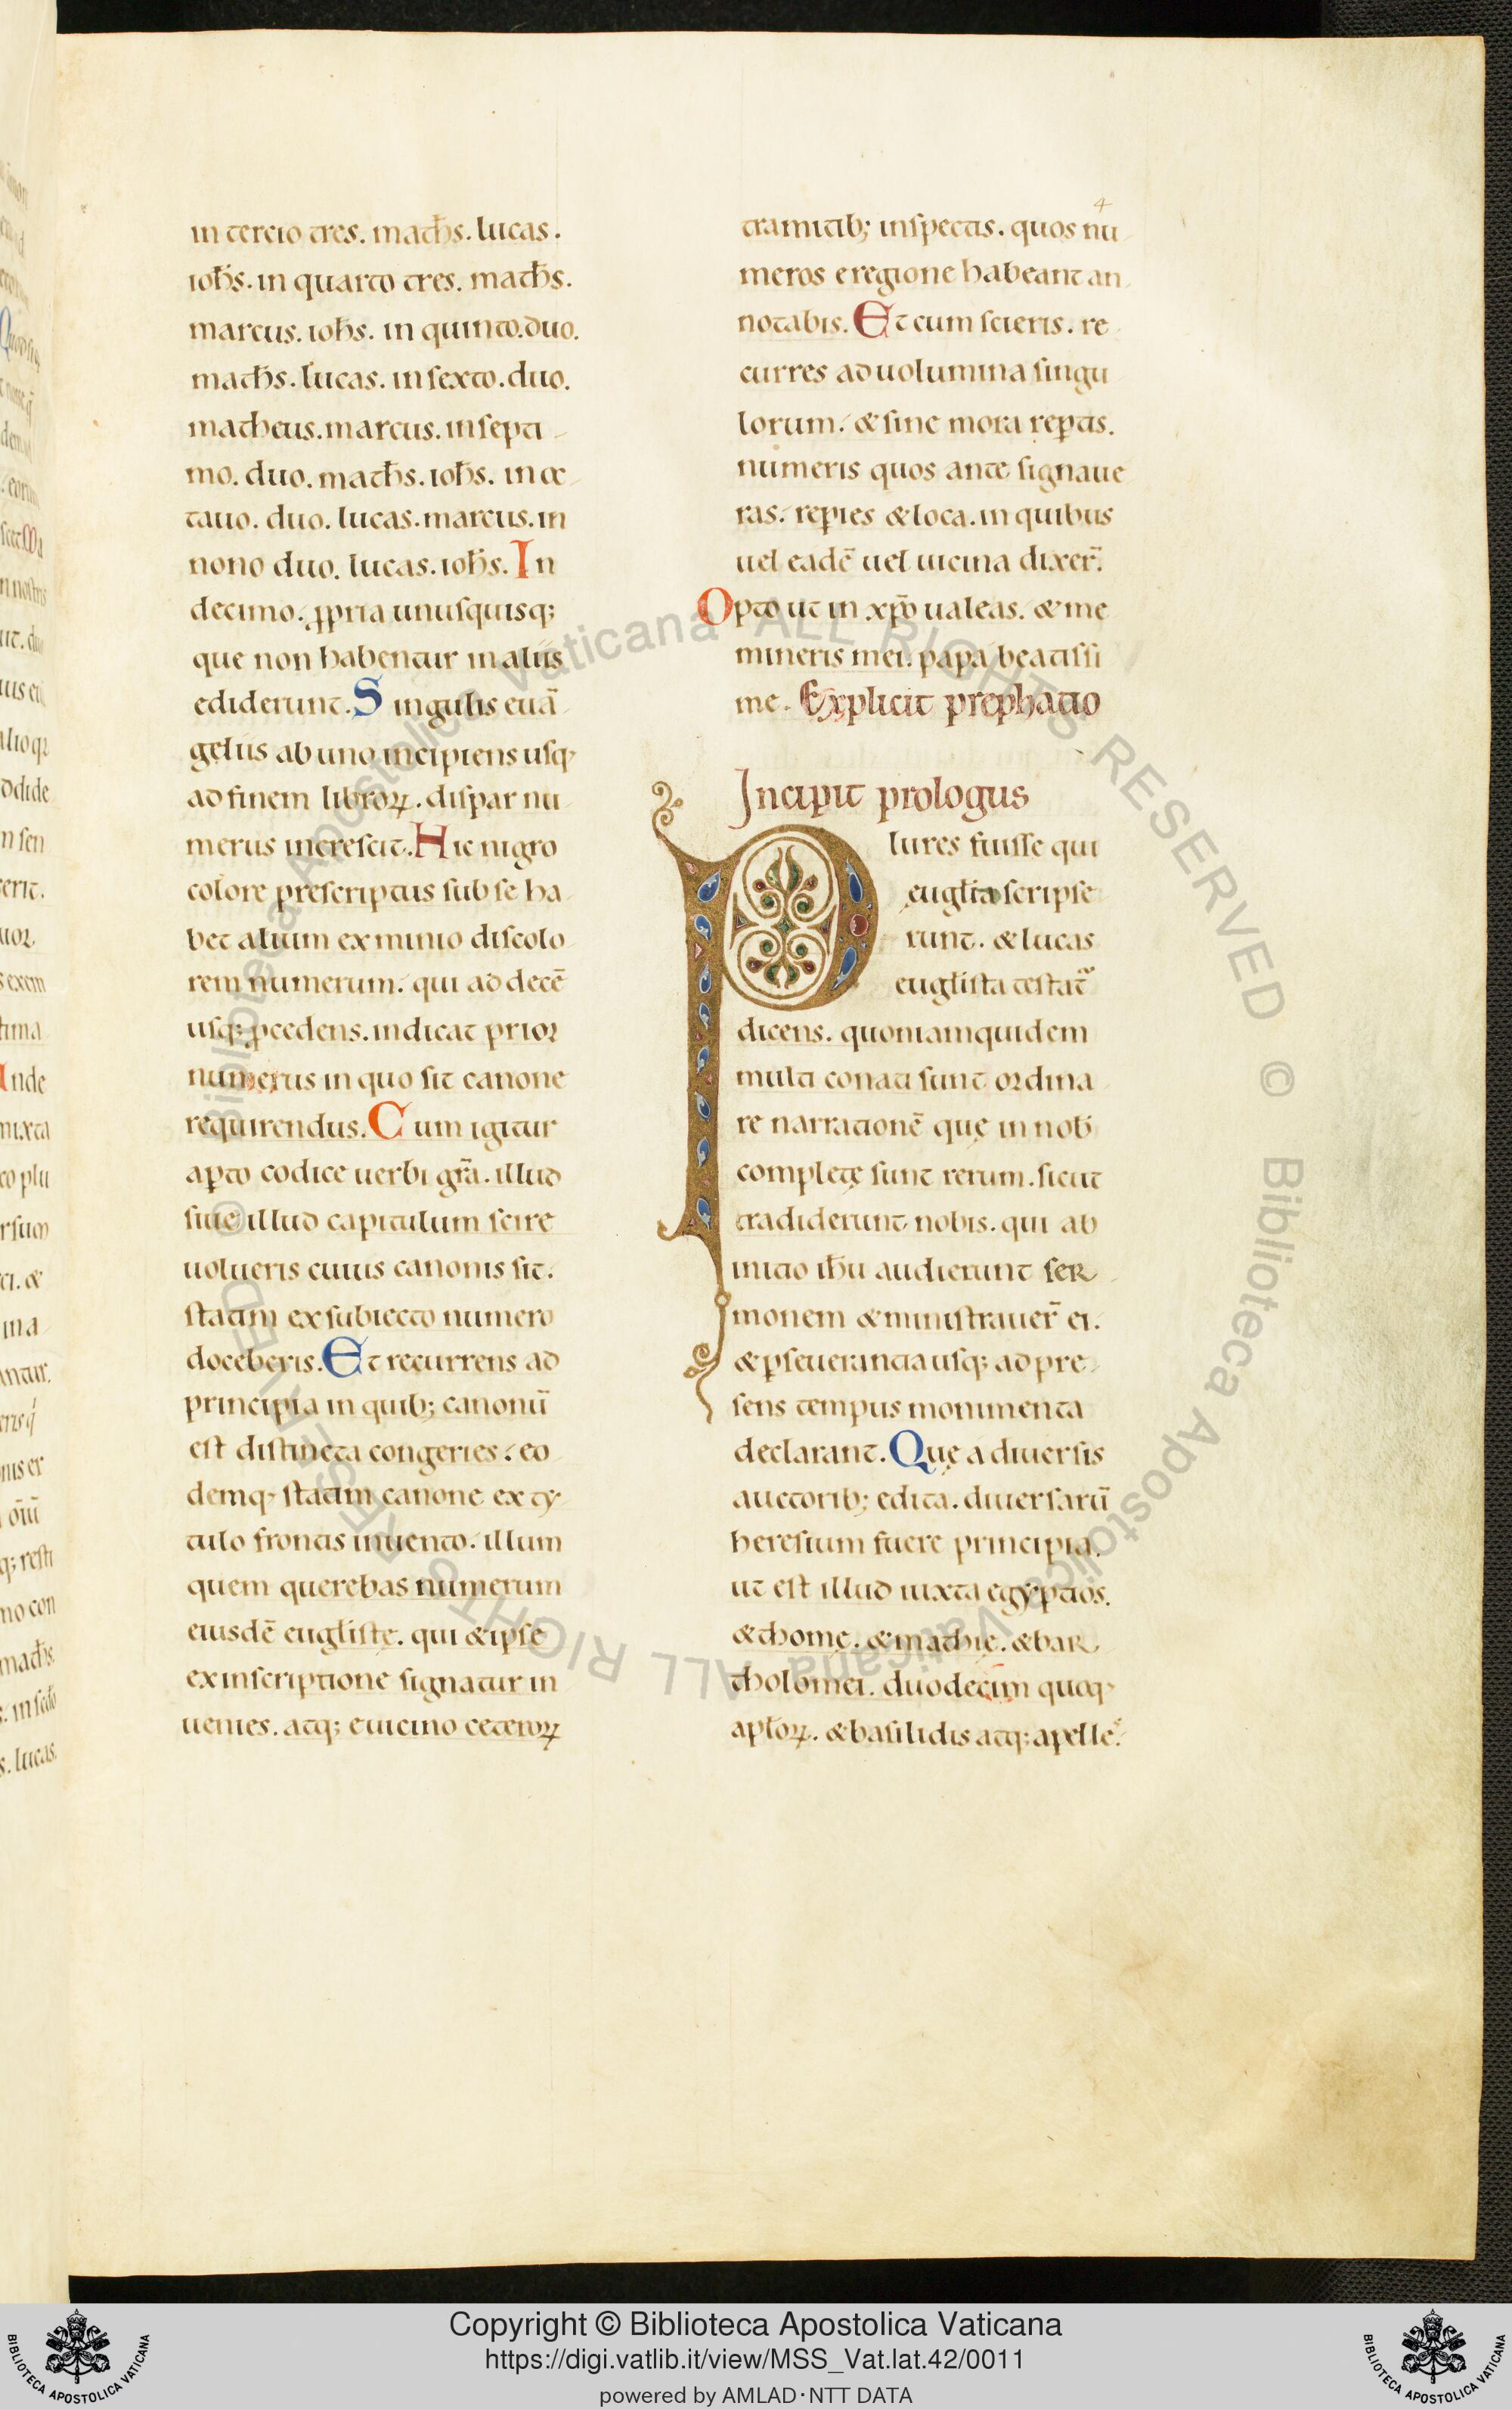 in tercio tres. math̄s. lucas.
ioh̄s. in quarto tres. math̄s.
marcus. ioh̄s. in quinto. duo.
math̄s. lucas. in sexto. duo.
matheus. marcus. in septi
mo. duo. math̄s. ioh̄s. in oc
tauo. duo. lucas. marcus. in
nono duo. lucas. ioh̄s. In
decimo. ꝓpria unusquisq;
que non habentur in aliis
ediderunt. Singulis euā
geliis ab uno incipiens usq;
ad finem libroꝝ. dispar nu
merus increscit. Hic nigro
colore prescriptus sub se ha
bet alium ex minio discolo
rem numerum. qui ad decē
usq; ꝓcedens. indicat prior
numerus in quo sit canone
requirendus. Cum igitur
aꝑto codice uerbi gr̄a. illud
siue illud capitulum scire
uolueris cuius canonis sit.
statim ex subiecto numero
doceberis. Et recurrens ad
principia in quib; canonū
est distincta congeries. eo
demq; statim canone ex ty
tulo frontis inuento. illum
quem querebas numerum
eiusdē eugl̄istę. qui & ipse
ex inscriptione signatur in
uenies. atq; e uicino ceteroꝝ
4
tramitib; inspectis. quos nu
meros e regione habeant an
notabis. Et cum scieris. re
curres ad uolumina singu
lorum. & sine mora reꝑtis.
numeris quos ante signaue
ras. reꝑies & loca. in quibus
uel eadē uel uicina dixer̄.
Opto ut in xp̄o ualeas. & me
mineris mei. papa beatissi
me. Explicit prephatio
Incipit prologus
Plures fuisse qui
eugl̄ia scripse
runt. & lucas
eugl̄ista testat᷑
dicens. quoniamquidem
multi conati sunt ordina
re narrationē quę in nob̄
completę sunt rerum. sicut
tradiderunt nobis. qui ab
initio ih̄u audierunt ser
monem & ministrauer̄ ei.
& ꝑseuerantia usq; ad pre
sens tempus monimenta
declarant. Quę a diuersis
auctorib; edita. diuersarū
heresium fuere principia.
ut est illud iuxta egyptios.
& thomę. & mathię. & bar
tholomei. duodecim quoq;
apl̄oꝝ. & basilidis atq; apelle.
Copyright © Biblioteca Apostolica Vaticana
https://digi.vatlib.it/view/MSS_Vat.lat.42/0011
powered by AMLAD·NTT DATA
BIBLIOTECA APOSTOLICA VATICANA
BIBLIOTECA APOSTOLICA VATICANA
© Biblioteca Apostolica Vaticana ALL RIGHTS RESERVED
© Biblioteca Apostolica Vaticana ALL RIGHTS RESERVED